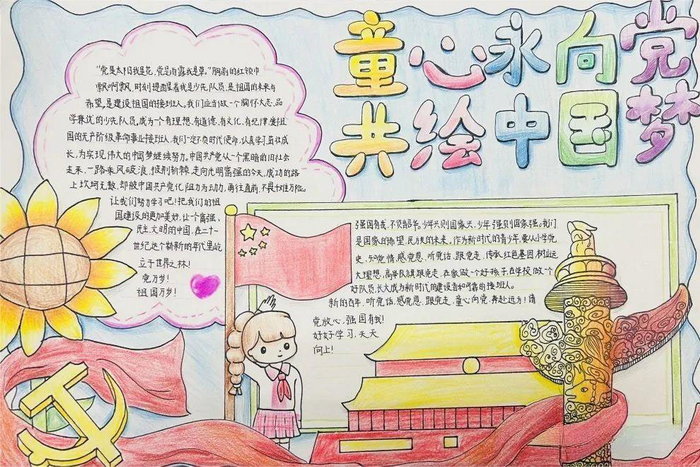 童心永向党
共绘中国梦
"党是太阳我是花,党是雨露我是芽。"胸前的红领巾
飘啊飘,时刻提醒着我是少先队员,是祖国的未来与
希望,是建设祖国的接班人。我们应当做一个胸怀大志,品
学兼优的少先队员,成为一个有理想,有道德,有文化,有纪律,爱祖
国的无产阶级革命事业接班人,我们一定不负时代使命,认真学习,茁壮成
长,为实现伟大的中国梦继续努力。中国共产党从一个黑暗的旧社会
走来,一路乘风破浪,披荆斩棘,走向光明富强的今天,成功的路
上坎坷无数,却被中国共产党化阻力为动力,勇往直前,不畏艰难万险。
让我们努力学习吧!把我们的祖
国建设的更加美好,让个富强、
民主,文明的中国,在二十一
世纪这个崭新的年代里屹
立于世界之林!
党万岁!
祖国万岁!
强国有我,不负韶华,少年兴则国家兴,少年强则国家强。我们
是国家的希望,民族的未来,作为新时代的青少年,要从小学党
史,知党情,感党恩,听党话,跟党走,传承红色基因,树立远
大理想,高举队旗跟党走,在家做一个好孩子,在学校做一个
好队员,长大成为新时代的建设者和可靠的接班人。
新的百年,听党话,感党恩,跟党走,童心向党,奔赴远方!请
党放心,强国有我!
好好学习,天天
向上!